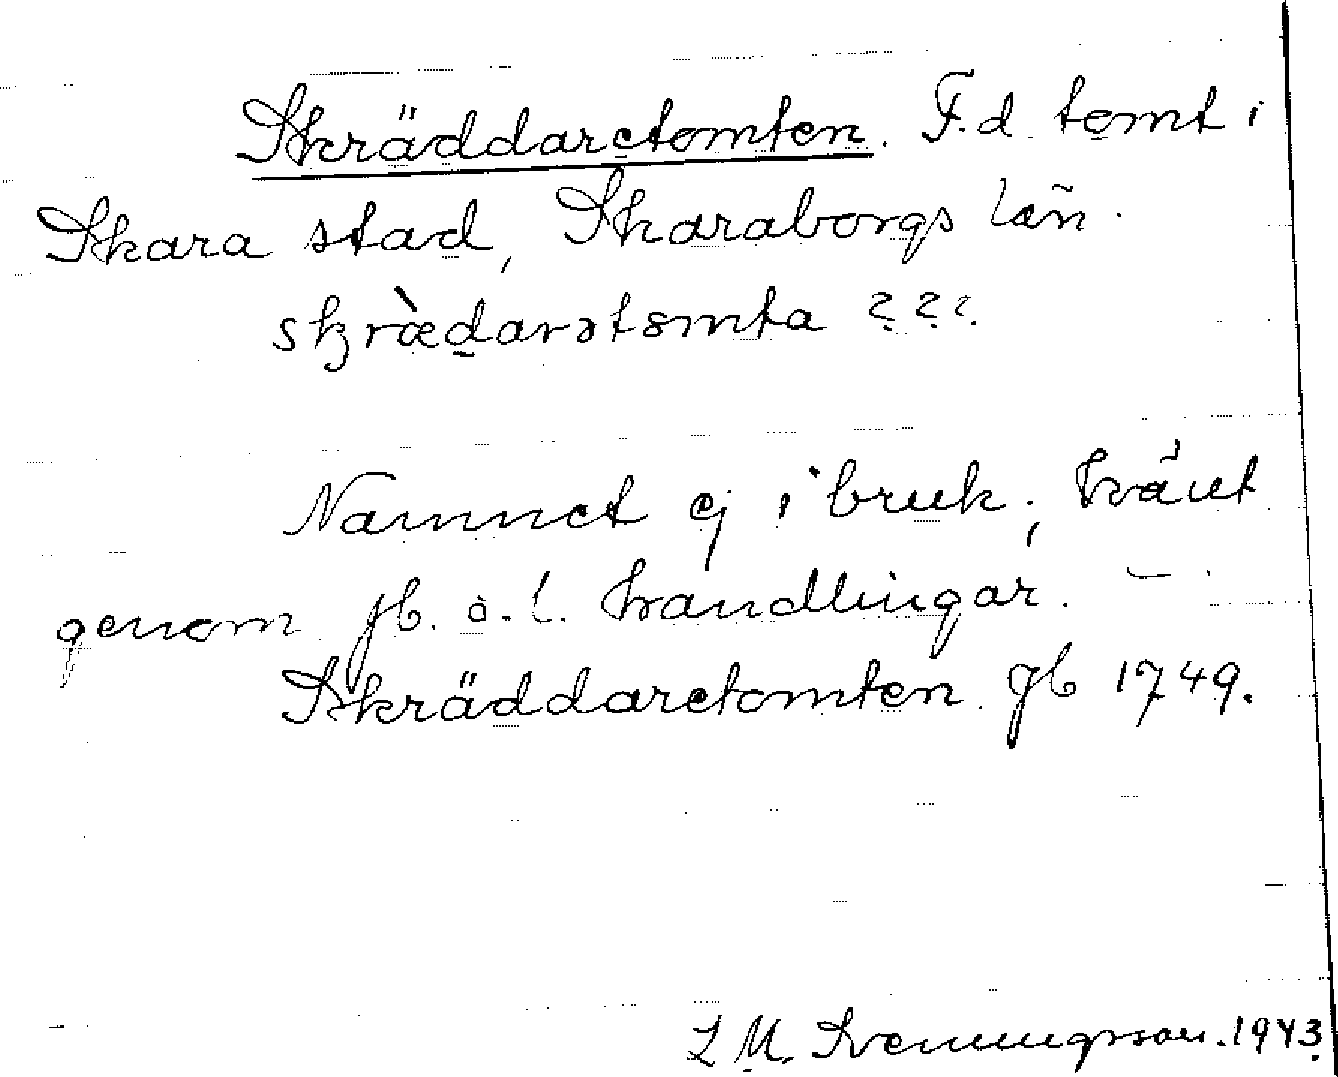 Skräddaretomten. F.d. tomt i
Skara stad, Skaraborgs län.
skrædarətomta ???.
Namnet ej i bruk; hävet
genom jb. o. l. handlingar. –
Skräddaretomten Jb 1749.
L M. Sveningsson. 1943